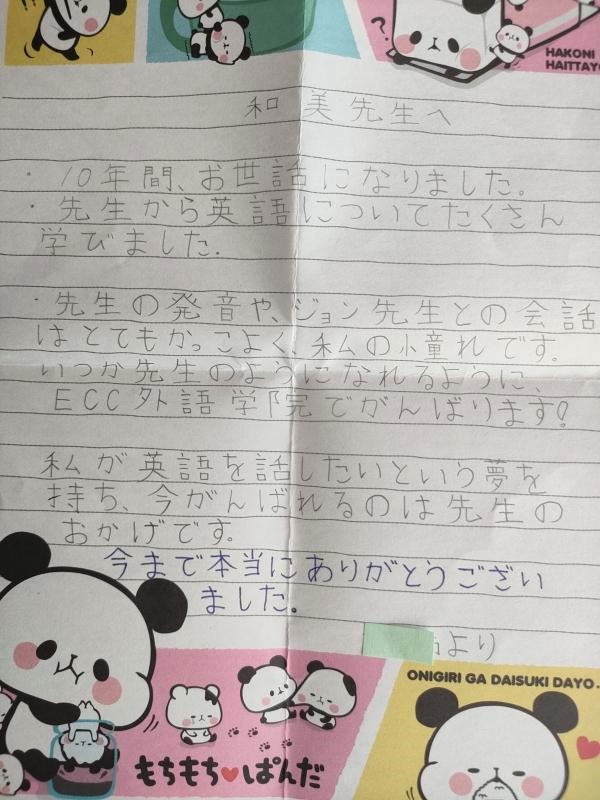 ?
HAKONI
HAITTAYO
和美先生へ
・10年間、お世話になりました。
・先生から英語についてたくさん
学びました。
・先生の発音や、ジョン先生との会話
はとてもかっこよく、私の小童れです。
いつか先生のようになれるように、
ECC外語学院でがんばります!
私が英語を話したいという夢を
持ち、今がんばれるのは先生の
おかげです。
今まで本当にありがとうござい
ました。
より
ONIGIRI GA DAISUKI DAYO.
もちもち♥ぱんだ